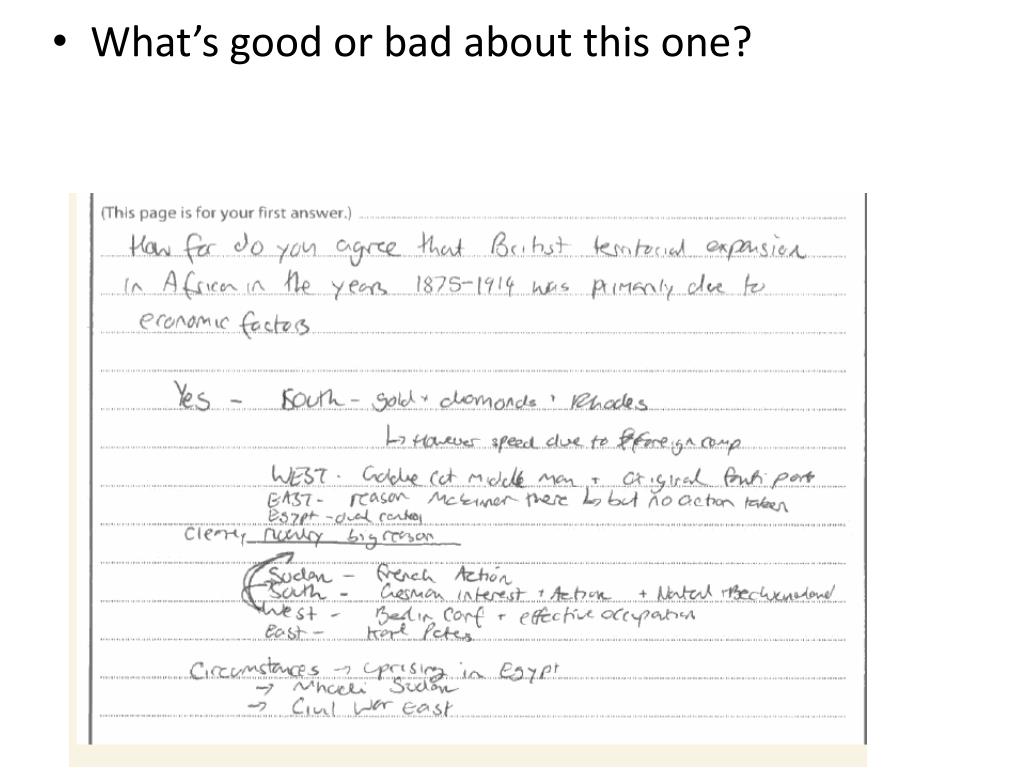 • What's good or bad about this one?
(This page is for your first answer.)
How far do you agree that British territorial expansion
in Africa in the years 1875-1914 was primarily due to
economic factors
Yes - South - gold + diamonds + Rhodes
↳ However speed due to foreign comp
WEST - Goldie cut middle man + original port
EAST - reason McKinnon there ↳ but no action taken
Egypt - dual control
Clearly big reason
Sudan - French Action
South - German interest + Action + Natal + Bechuanaland
West - Berlin Conf + effective occupation
East - Karl Peters
Circumstances → uprising in Egypt
→ Mhadi Sudan
→ Civil War East